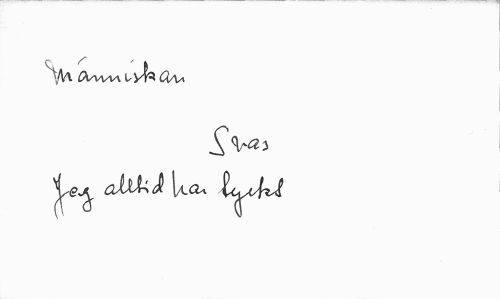 Människan
Svas
Jeg alltid har tyckt